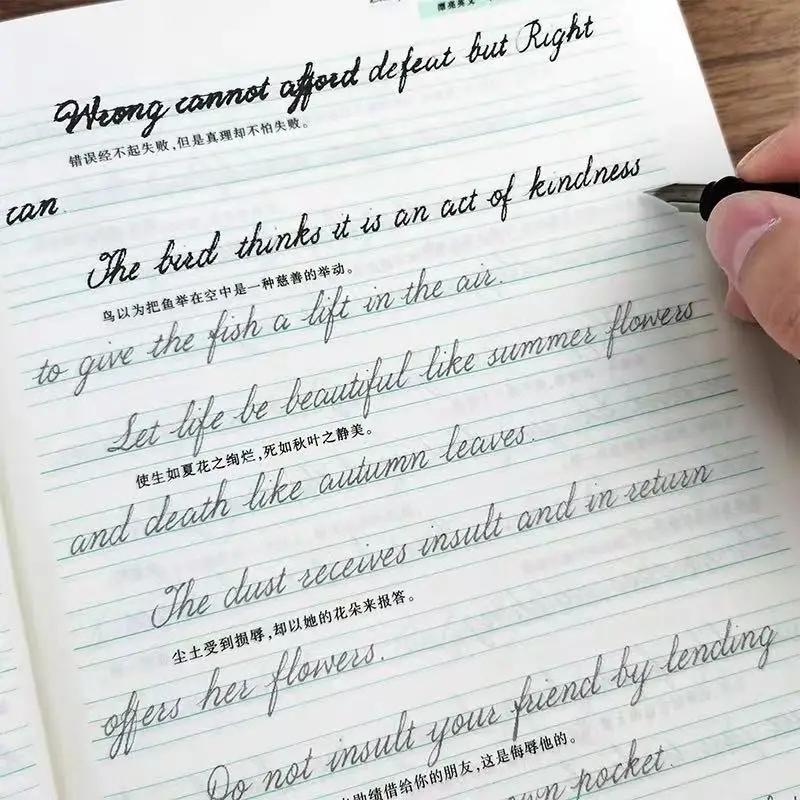 漂亮英文
Wrong cannot afford defeat but Right
错误经不起失败,但是真理却不怕失败。
can
The bird thinks it is an act of kindness
鸟以为把鱼举在空中是一种慈善的举动。
to give the fish a lift in the air.
Let life be beautiful like summer flowers
使生如夏花之绚烂,死如秋叶之静美。
and death like autumn leaves.
The dust receives insult and in return
尘土受到损辱,却以她的花朵来报答。
offers her flowers.
Do not insult your friend by lending
勋绩借给你的朋友,这是侮辱他的。
own pocket.